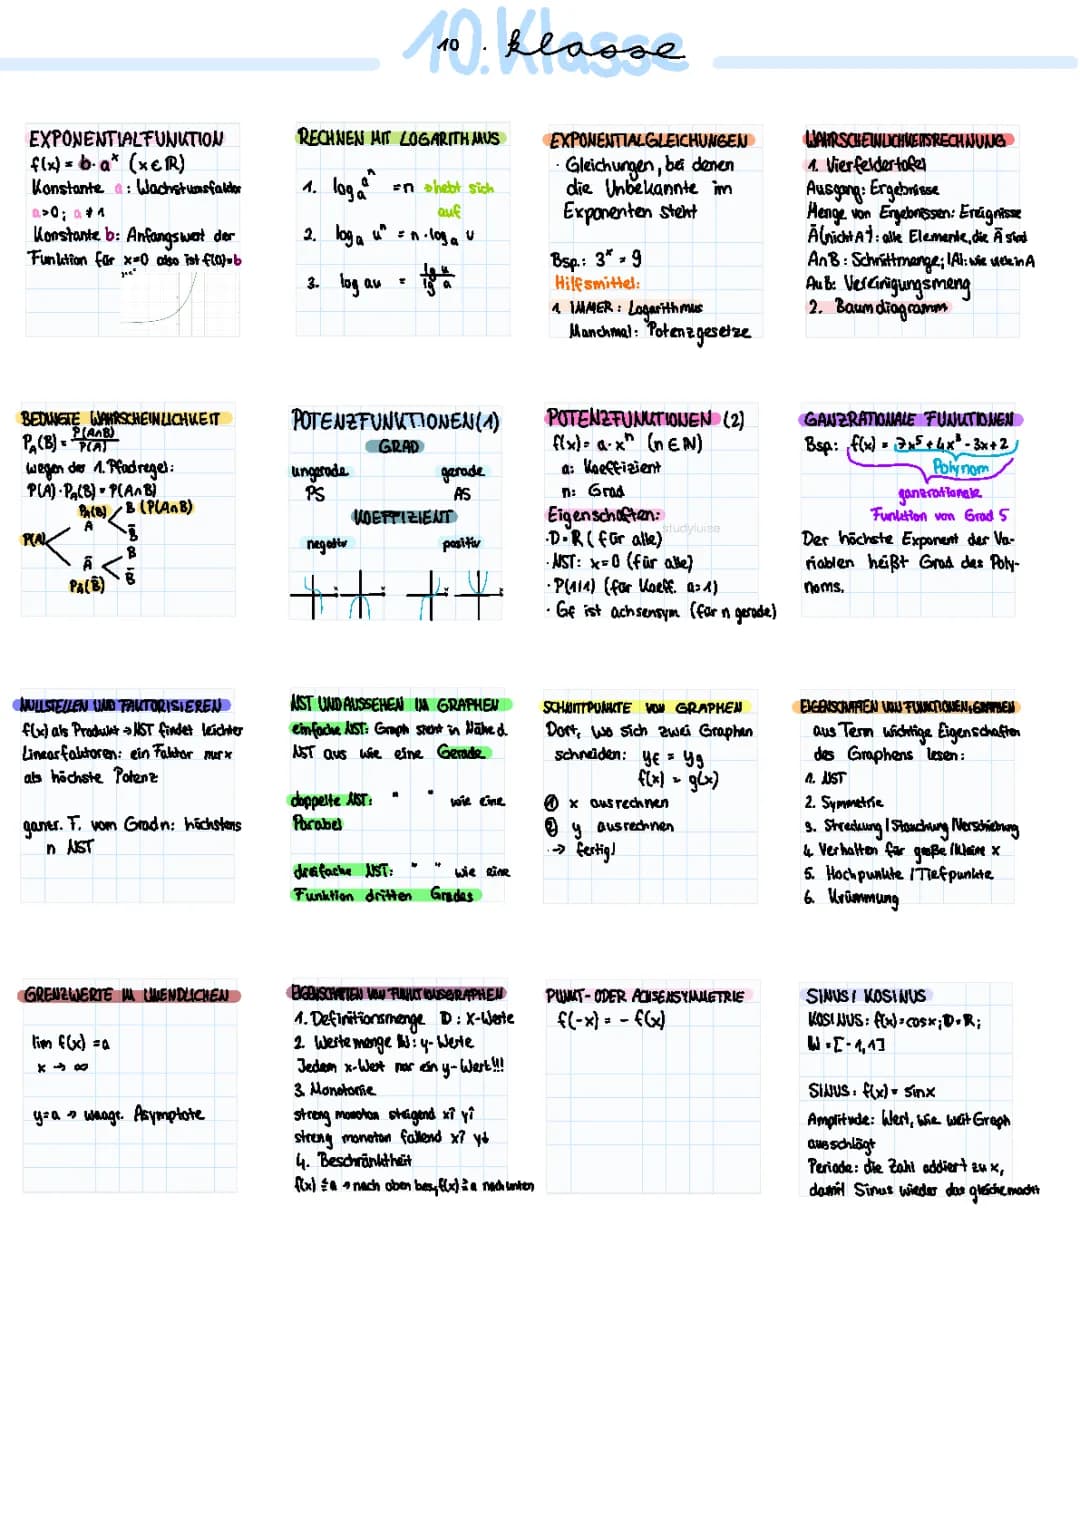 10. Klasse
10. klasse
EXPONENTIALFUNKTION
f(x) = b·aˣ (x∈ℝ)
Konstante a: Wachstumsfaktor
a>0; a≠1
Konstante b: Anfangswert der
Funktion für x=0 also ist f(0)=b
RECHNEN MIT LOGARITHMUS
1. logₐ aⁿ = n → hebt sich
auf
2. logₐ uⁿ = n·logₐ u
3. log au = lg u / lg a
EXPONENTIALGLEICHUNGEN
· Gleichungen, bei denen
die Unbekannte im
Exponenten steht
Bsp.: 3ˣ = 9
Hilfsmittel:
1. IMMER: Logarithmus
Manchmal: Potenzgesetze
WAHRSCHEINLICHKEITSRECHNUNG
1. Vierfeldertafel
Ausgang: Ergebnisse
Menge von Ergebnissen: Ereignisse
Ā (nicht A): alle Elemente, die Ā sind
A∩B: Schnittmenge; |A|: wie viele in A
A∪B: Vereinigungsmeng
2. Baumdiagramm
BEDINGTE WAHRSCHEINLICHKEIT
P_A(B) = P(A∩B) / P(A)
wegen der 1. Pfadregel:
P(A)·P_A(B) = P(A∩B)
P_A(B) B (P(A∩B)
A
P(A) B̄
B
Ā
P_A(B̄) B̄
POTENZFUNKTIONEN (1)
GRAD
ungerade gerade
PS AS
KOEFFIZIENT
negativ positiv
POTENZFUNKTIONEN (2)
f(x) = a·xⁿ (n∈ℕ)
a: Koeffizient
n: Grad
Eigenschaften:
studyluise
·D=R (für alle)
·NST: x=0 (für alle)
·P(1|1) (für Koeff. a=1)
·Gf ist achsensym (für n gerade)
GANZRATIONALE FUNKTIONEN
Bsp.: f(x) = 7x⁵+4x³-3x+2
Polynom
ganzrationale
Funktion von Grad 5
Der höchste Exponent der Va-
riablen heißt Grad des Poly-
noms.
NULLSTELLEN UND FAKTORISIEREN
f(x) als Produkt → NST findet leichter
Linearfaktoren: ein Faktor nur x
als höchste Potenz
ganzr. F. vom Grad n: höchstens
n NST
NST UND AUSSEHEN IM GRAPHEN
einfache NST: Graph sieht in Nähe d.
NST aus wie eine Gerade
doppelte NST: " " wie eine
Parabel
dreifache NST: " " wie eine
Funktion dritten Grades
SCHNITTPUNKTE VON GRAPHEN
Dort, wo sich zwei Graphen
schneiden: yf = yg
f(x) = g(x)
① x ausrechnen
② y ausrechnen
→ fertig!
EIGENSCHAFTEN VON FUNKTIONEN, GRAPHEN
aus Term wichtige Eigenschaften
des Graphens lesen:
1. NST
2. Symmetrie
3. Streckung | Stauchung | Verschiebung
4. Verhalten für große/kleine x
5. Hochpunkte / Tiefpunkte
6. Krümmung
GRENZWERTE IM UNENDLICHEN
lim f(x) = a
x → ∞
y=a → waagr. Asymptote
EIGENSCHAFTEN VON FUNKTIONSGRAPHEN
1. Definitionsmenge D: x-Werte
2. Wertemenge W: y-Werte
Jedem x-Wert nur ein y-Wert!!!
3. Monotonie
streng monoton steigend x↑ y↑
streng monoton fallend x↑ y↓
4. Beschränktheit
f(x) ≤ a → nach oben bes, f(x) ≥ a nach unten
PUNKT- ODER ACHSENSYMMETRIE
f(-x) = -f(x)
SINUS / KOSINUS
KOSINUS: f(x)=cosx; D=R;
W=[-1,1]
SINUS: f(x) = sinx
Amplitude: Wert, wie weit Graph
ausschlägt
Periode: die Zahl addiert zu x,
damit Sinus wieder das gleiche macht